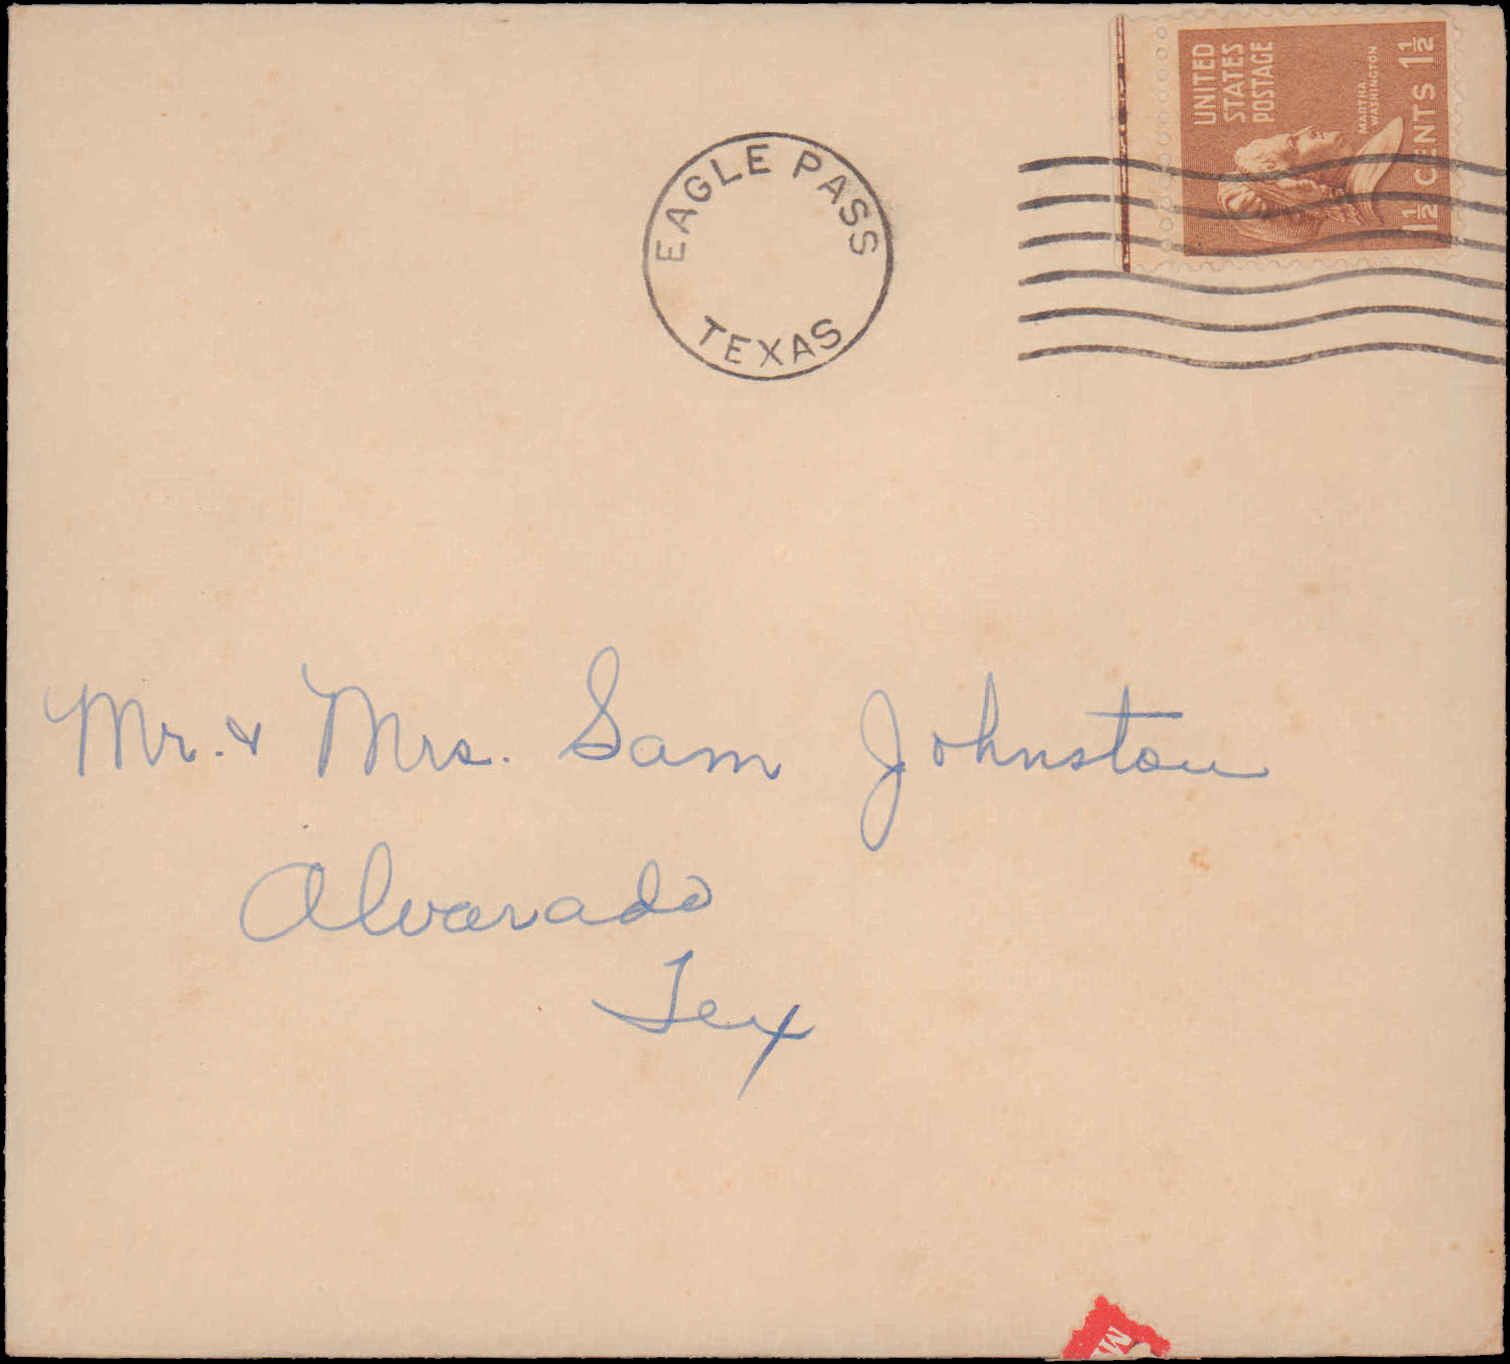 UNITED
STATES
POSTAGE
MARTHA
WASHINGTON
1½ CENTS 1½
EAGLE PASS
TEXAS
Mr. & Mrs. Sam Johnston
Alvarado
Tex